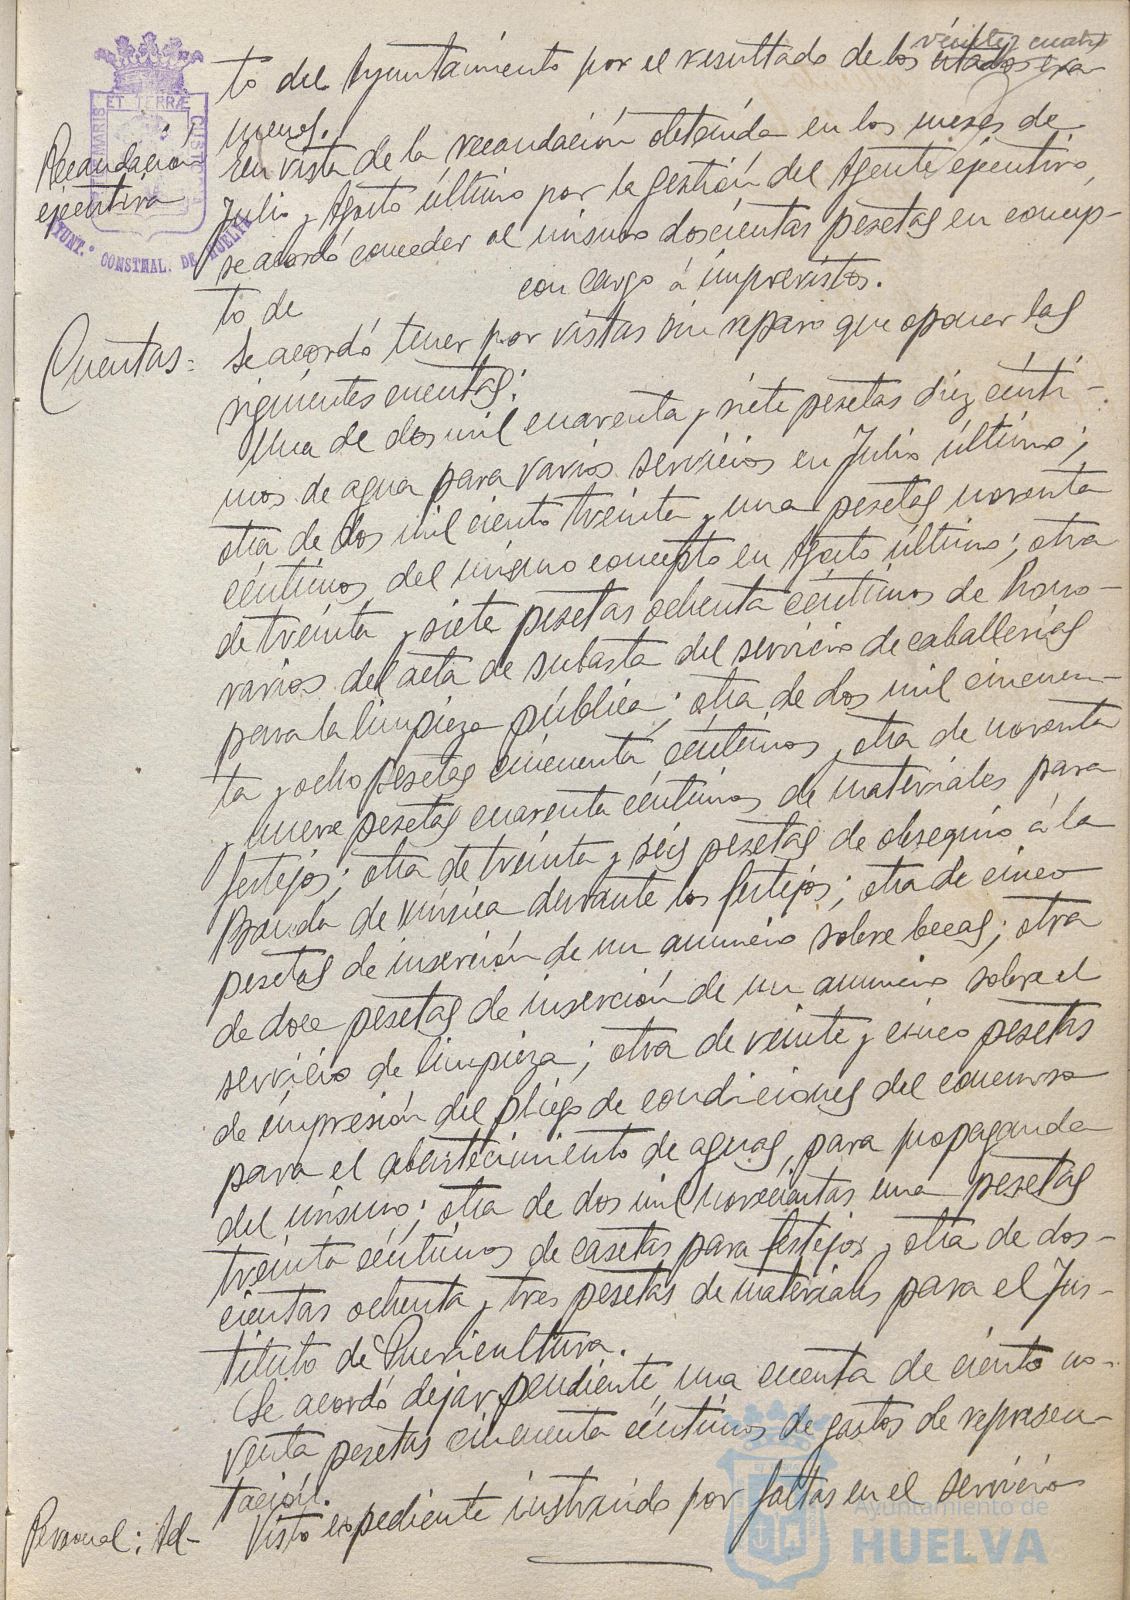 veinte y cuatro
to del Ayuntamiento por el resultado de los citados exá
menes.
Recaudación
ejecutiva
PORTUS MARIS ET TERRÆ CUSTODIA
AYUNT.º CONSTNAL. DE HUELVA
En vista de la recaudación obtenida en los meses de
Julio y Agosto último por la gestión del Agente ejecutivo,
se acordó conceder al mismo doscientas pesetas en concep-
to de con cargo á imprevistos.
Cuentas=
Se acordó tener por vistas sin reparo que oponer las
siguientes cuentas:
Una de dos mil cuarenta y siete pesetas diez cénti-
mos de agua para varios servicios en Julio último;
otra de dos mil ciento treinta y una pesetas noventa
céntimos, del mismo concepto en Agosto último; otra
de treinta y siete pesetas ochenta céntimos de hono-
rarios del acta de subasta del servicio de caballerías
para la limpieza pública; otra de dos mil cincuen-
ta y ocho pesetas cincuenta céntimos y otra de noventa
y nueve pesetas cuarenta céntimos de materiales para
festejos; otra de treinta y séis pesetas de obsequio á la
Banda de música durante los festejos; otra de cinco
pesetas de inserción de un anuncio sobre becas; otra
de doce pesetas de inserción de un anuncio sobre el
servicio de limpieza; otra de veinte y cinco pesetas
de impresión del pliego de condiciones del concurso
para el abastecimiento de aguas, para propaganda
del mismo; otra de dos mil novecientas una pesetas
treinta céntimos de casetas para festejos y otra de dos-
cientas ochenta y tres pesetas de materiales para el Ins-
tituto de Puericultura.
Se acordó dejar pendiente una cuenta de ciento no-
venta pesetas cincuenta céntimos de gastos de represen-
tación.
Personal: Ad-
Visto expediente instruido por faltas en el servicio
Ayuntamiento de
HUELVA